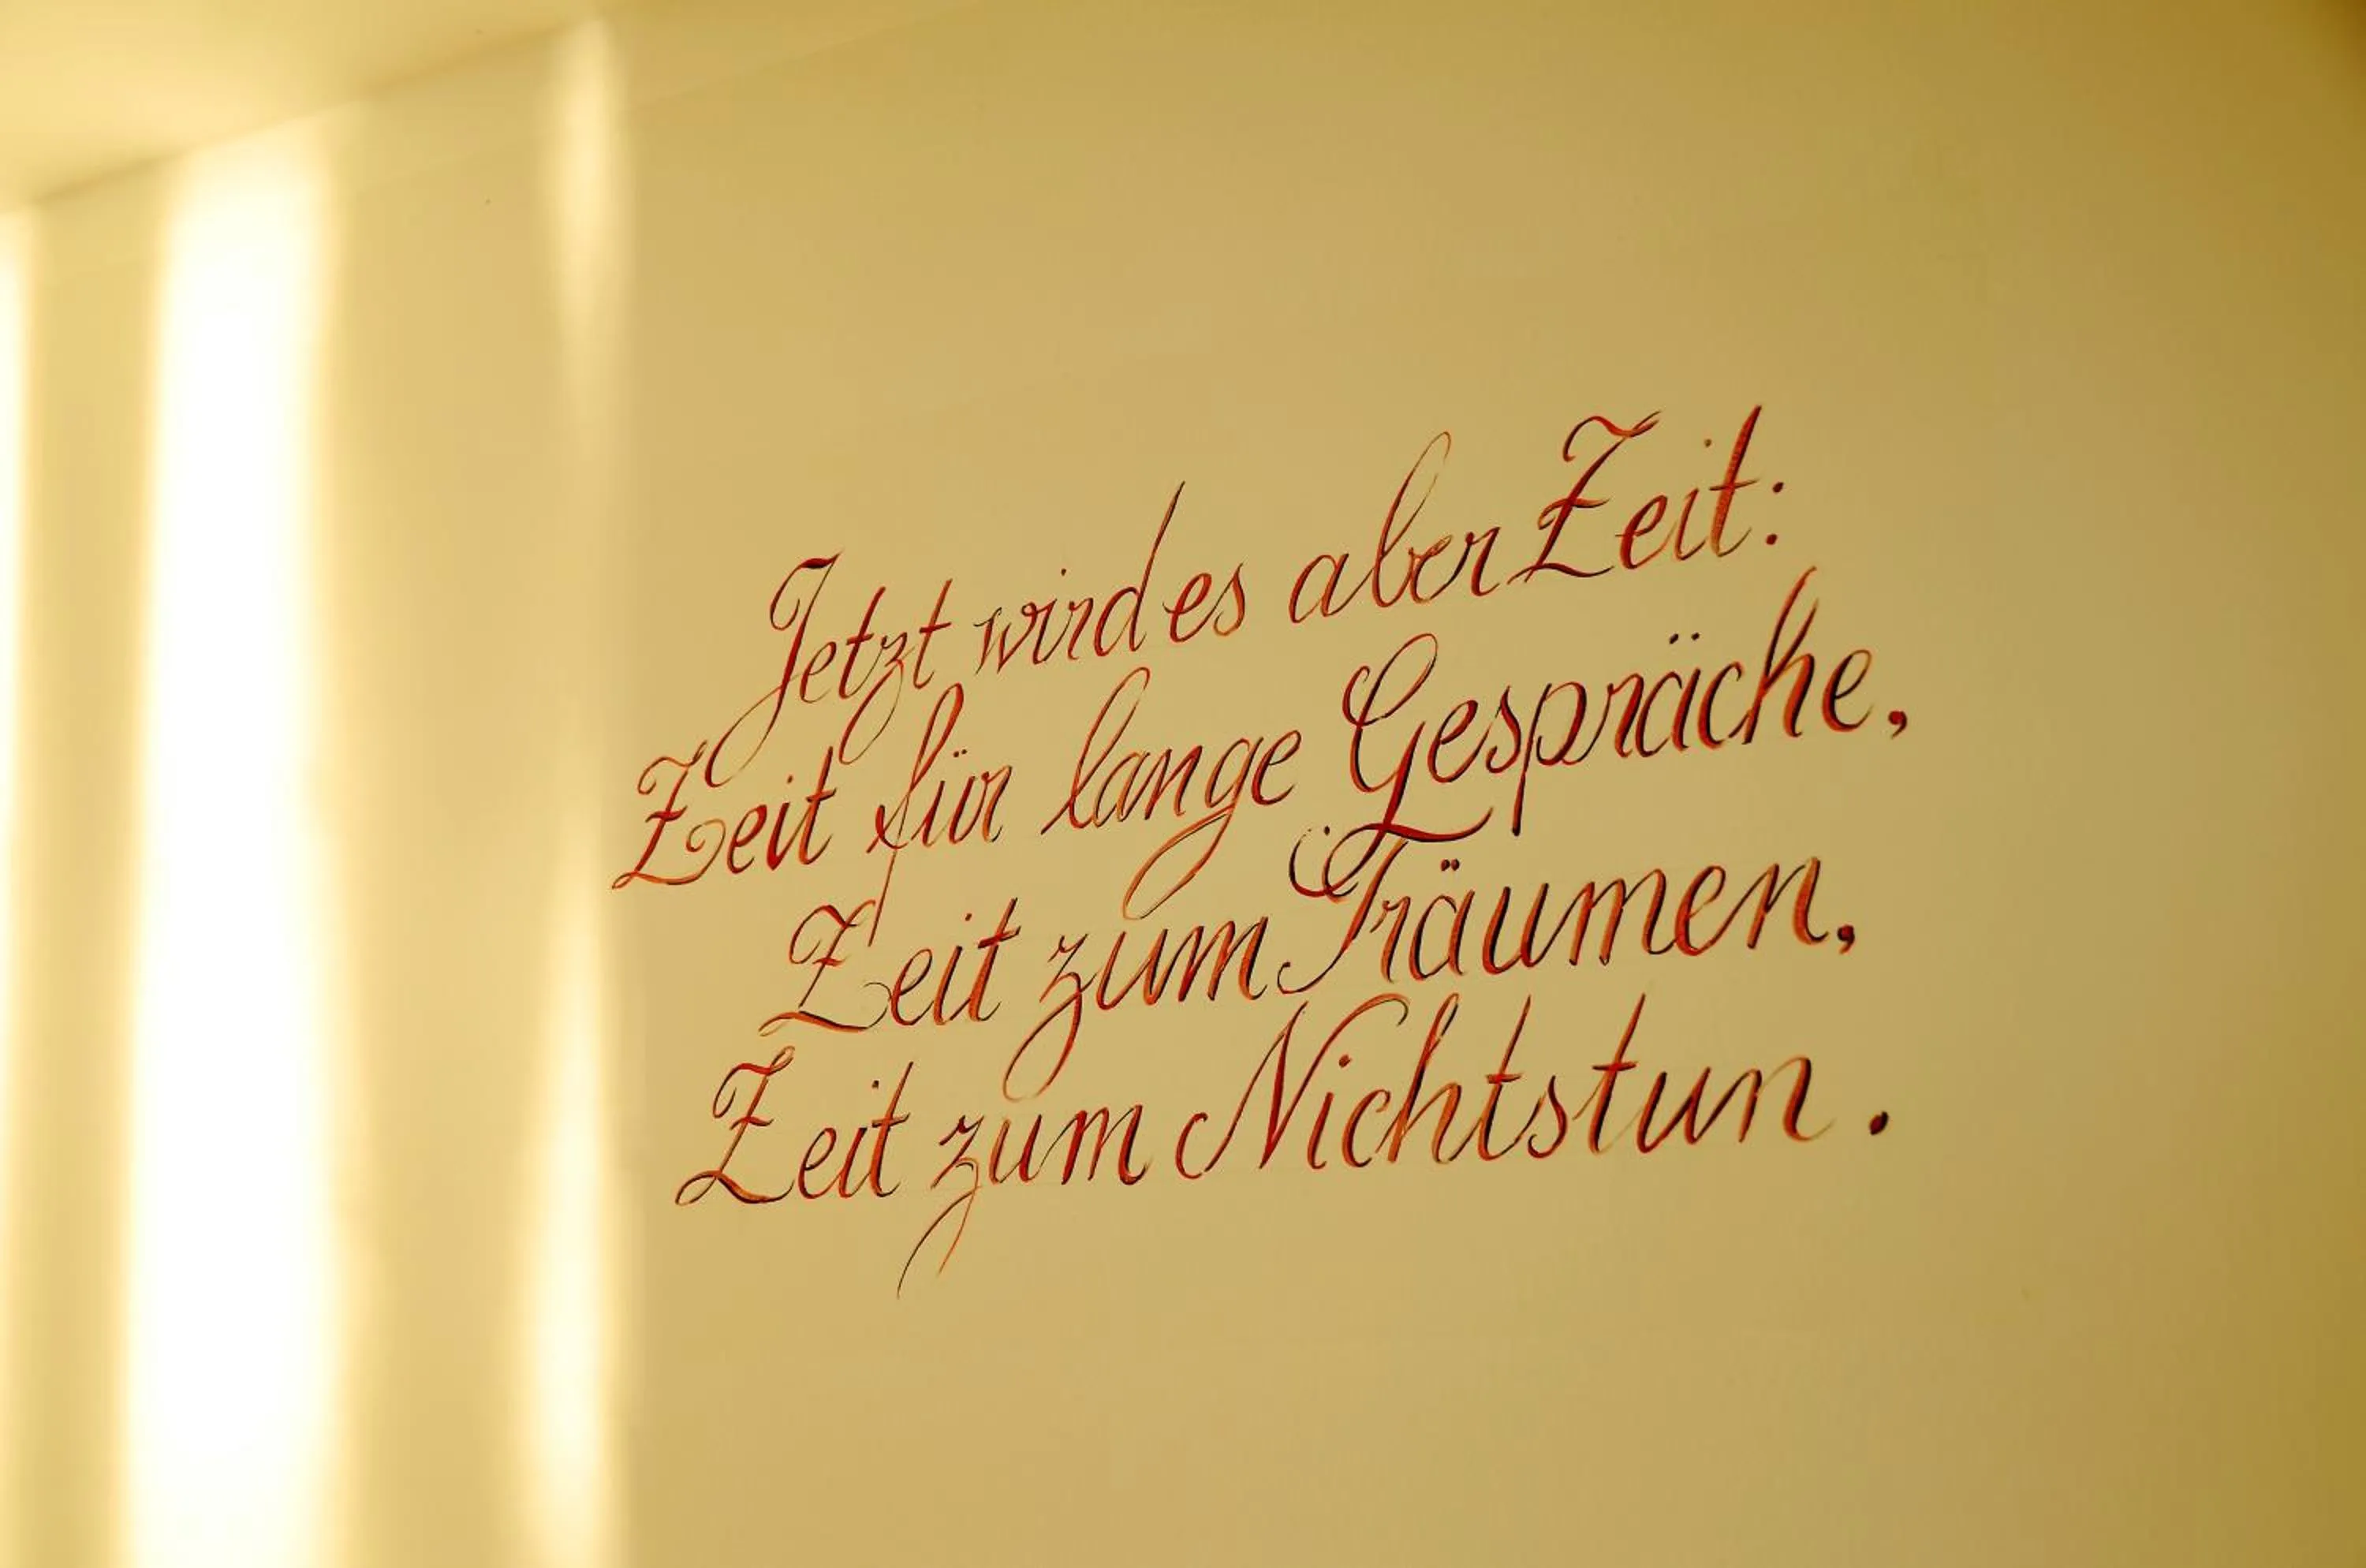 Jetzt wird es aber Zeit:
Zeit für lange Gespräche,
Zeit zum Träumen,
Zeit zum Nichtstun.